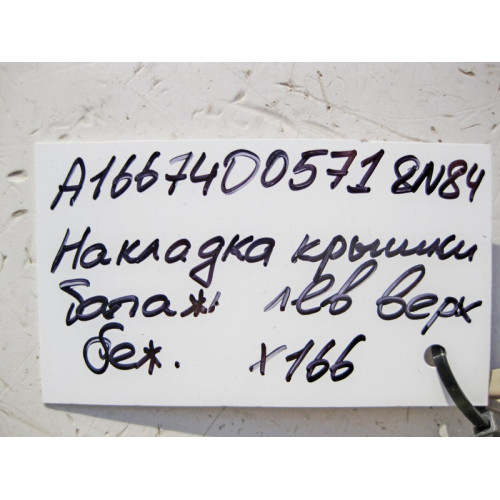 A1667400571 8N84
Накладка крышки
багаж. лев верх
беж. x166